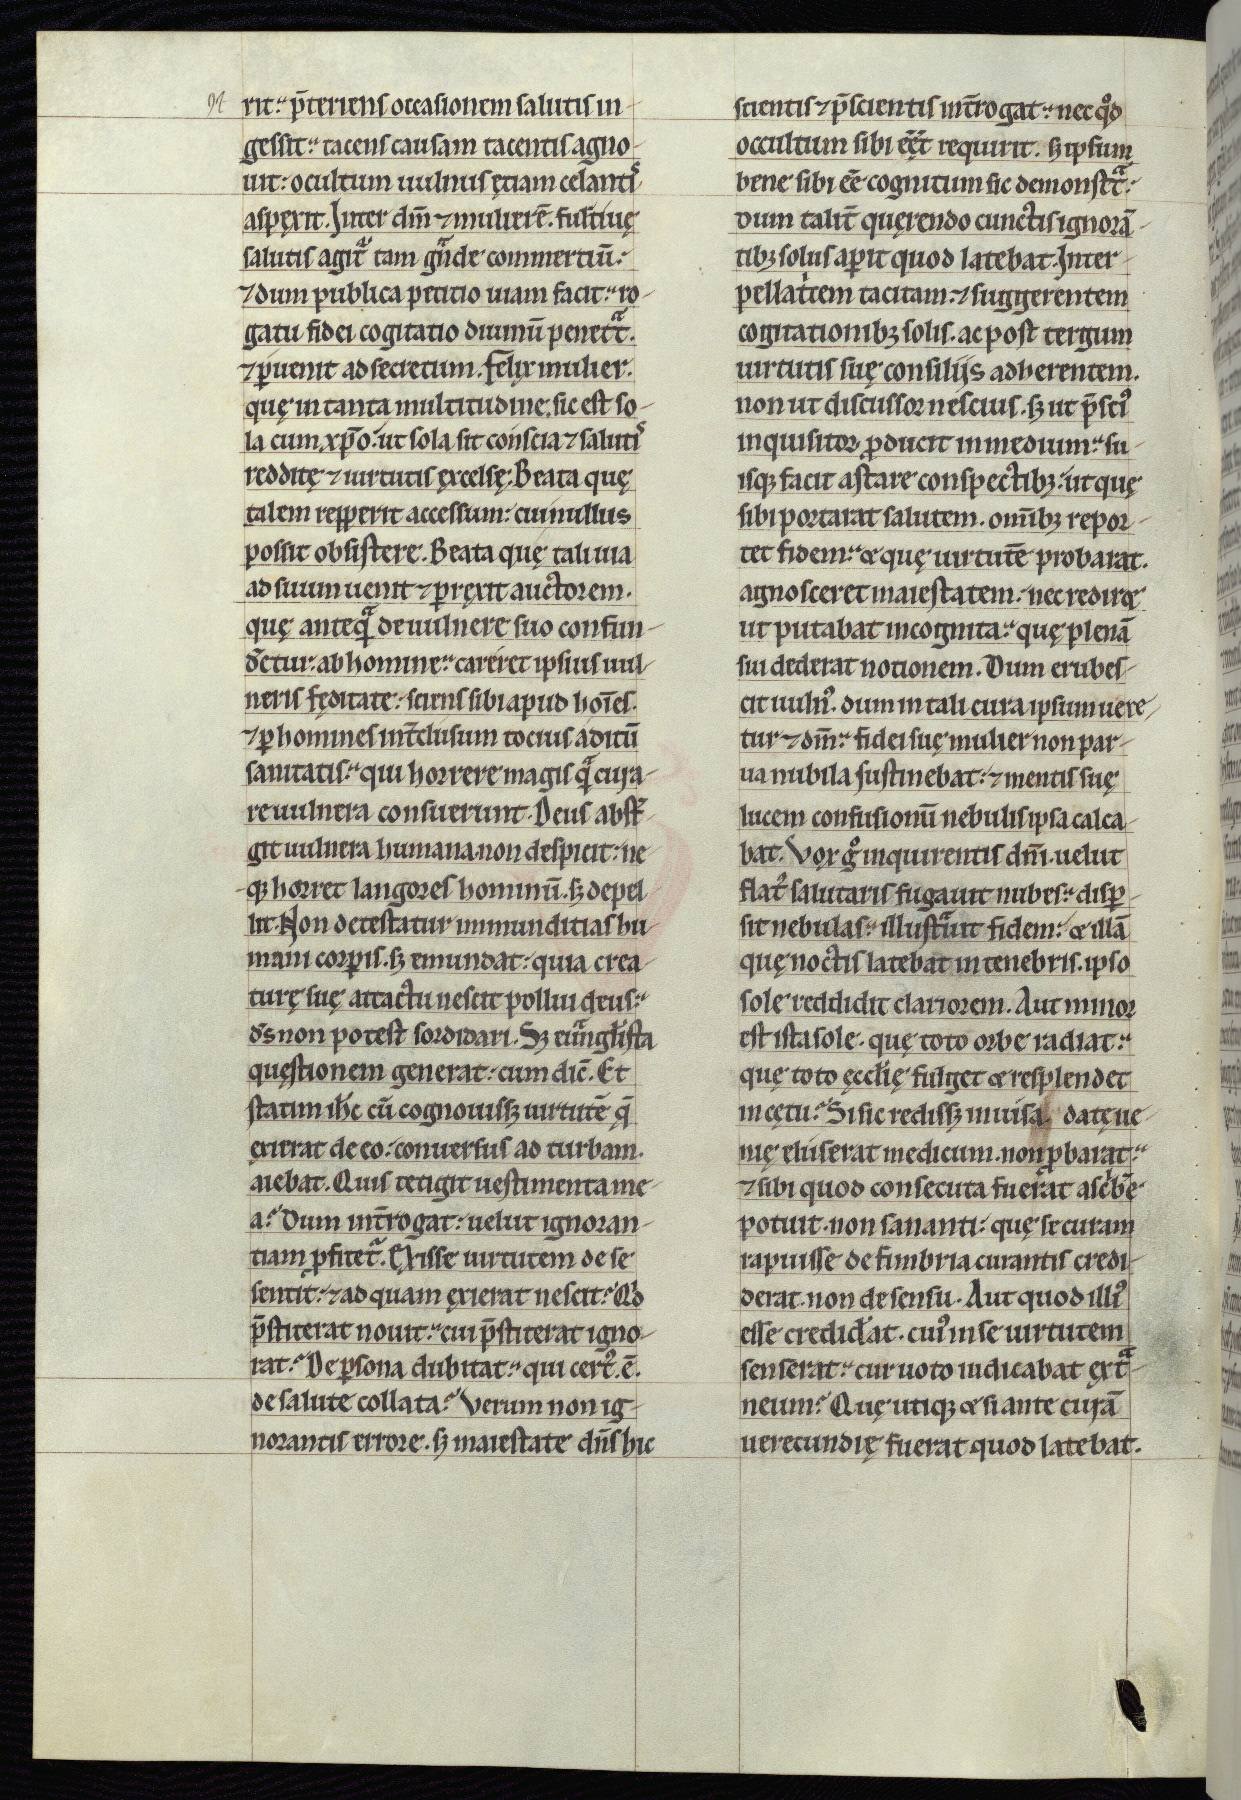 rit: p̄teriens occasionem salutis in-
gessit: tacens causam tacentis agno-
uit: ocultum uulnus ętiam celantis
aspęxit. Inter dn̄m ⁊ mulierē. furtiuę
salutis agitᷓ tam gᷓnde commertiū:
⁊ dum publica petitio uiam facit: ro-
gatu fidei cogitatio diuinū penetᷓt.
⁊ ꝑuenit ad secretum. Felix mulier.
quę in tanta multitudine, sic est so-
la cum xp̄o: ut sola sit conscia ⁊ salutis
redditę ⁊ uirtutis ęxcelsę. Beata quę
talem repperit accessum: cui nullus
possit obsistere. Beata quę tali uia
ad suum uenit ⁊ ꝑręxit auctorem.
quę anteqᷓ de uulnere suo confun-
dēetur: ab homine: careret ipsius uul-
neris fęditate: sciens sibi apud hoīes.
⁊ ꝑ homines int̄clusum tocius aditū
sanitatis: qui horrere magis qᷓ cura-
re uulnera consuerunt. Deus abst̾-
git uulnera humana non despicit: ne-
qꝫ horret langores hominū. sꝫ depel-
lit. Non detestatur immunditias hu-
mani corꝑis. sꝫ emundat: quia crea-
turę suę attactu nescit pollui deus:
d̄s non potest sordidari. Sꝫ euᷓngłista
quęstionem generat: cum dic̄. Et
statim ih̄c cū cognouissꝫ uirtutē q̄
ęxierat de eo: conuersus ad turbam.
aiebat. Quis tetigit uestimenta me-
a? Dum int̄rogat: uelut ignoran-
tiam ꝓfitetᷓ. Exisse uirtutem de se
sentit: ⁊ ad quam ęxierat nescit? Qd
p̄stiterat nouit: cui p̄stiterat igno-
rat? De ꝑsona dubitat: qui cert᷒. ē.
de salute collata? Verum non ig-
norantis errore. sꝫ maiestate dn̄s hic
scientis ⁊ p̄scientis int̄rogat: nec qͦd
occultum sibi eēt requirit. sꝫ ipsum
bene sibi eē cognitum sic demonstᷓt:
dum talit̄ quęrendo cunctis ignorā-
tibꝫ solus aꝑit quod latebat. Inter-
pellantem tacitam: ⁊ suggerentem
cogitationibꝫ solis. ac post tergum
uirtutis suę consilijs adherentem.
non ut discussor nescius. sꝫ ut p̄sci᷒
inquisitor, ꝓducit in medium: su-
isqꝫ facit astare conspectibꝫ: ut quę
sibi portarat salutem. om̄ibꝫ repor-
tet fidem: & quę uirtutē probarat.
agnosceret maiestatem. nec redir&
ut putabat incognita: quę plenā
sui dederat notionem. Dum erubes-
cit uuln᷒. dum in tali cura ipsum uere-
tur ⁊ dn̄m: fidei suę mulier non par-
ua nubila sustinebat: ⁊ mentis suę
lucem confusionū nebulis ipsa calca-
bat. Vox gͦ inquirentis dn̄i. uelut
flat᷒ salutaris fugauit nubes: disꝑ-
sit nebulas: illustᷓuit fidem: & illā
quę noctis latebat in tenebris. ipso
sole reddidit clariorem. Aut minor
est ista sole. quę toto orbe radiat:
que toto ęccłię fulget & resplendet
in cętu? Si sic redissꝫ inuisa. datę ue-
nię eluserat medicum. non ꝓbarat:
⁊ sibi quod consecuta fuerat ascbē
potuit. non sananti: quę se curam
rapuisse de fimbria curantis credi-
derat. non de sensu. Aut quod illi᷒
esse credid̾at. cui᷒ in se uirtutem
senserat: cur uoto iudicabat ęxtᷓ-
neum? Quę utiqꝫ & si ante curā
uerecundię fuerat quod latebat.